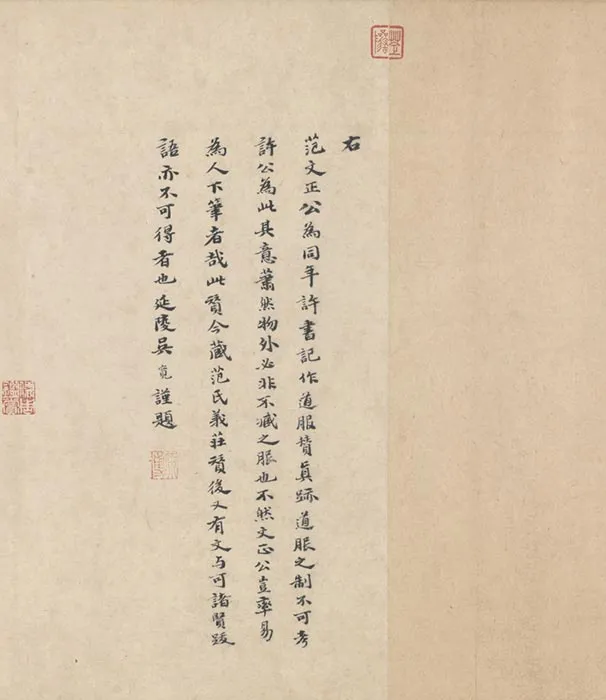 右
范文正公為同年許書記作道服賛真跡道服之制不可考
許公為此其意蕭然物外必非不臧之服也不然文正公豈率易
為人下筆者哉此賛今藏范氏義莊賛後又有文与可諸賢跋
語亦不可得者也延陵吳寬謹題